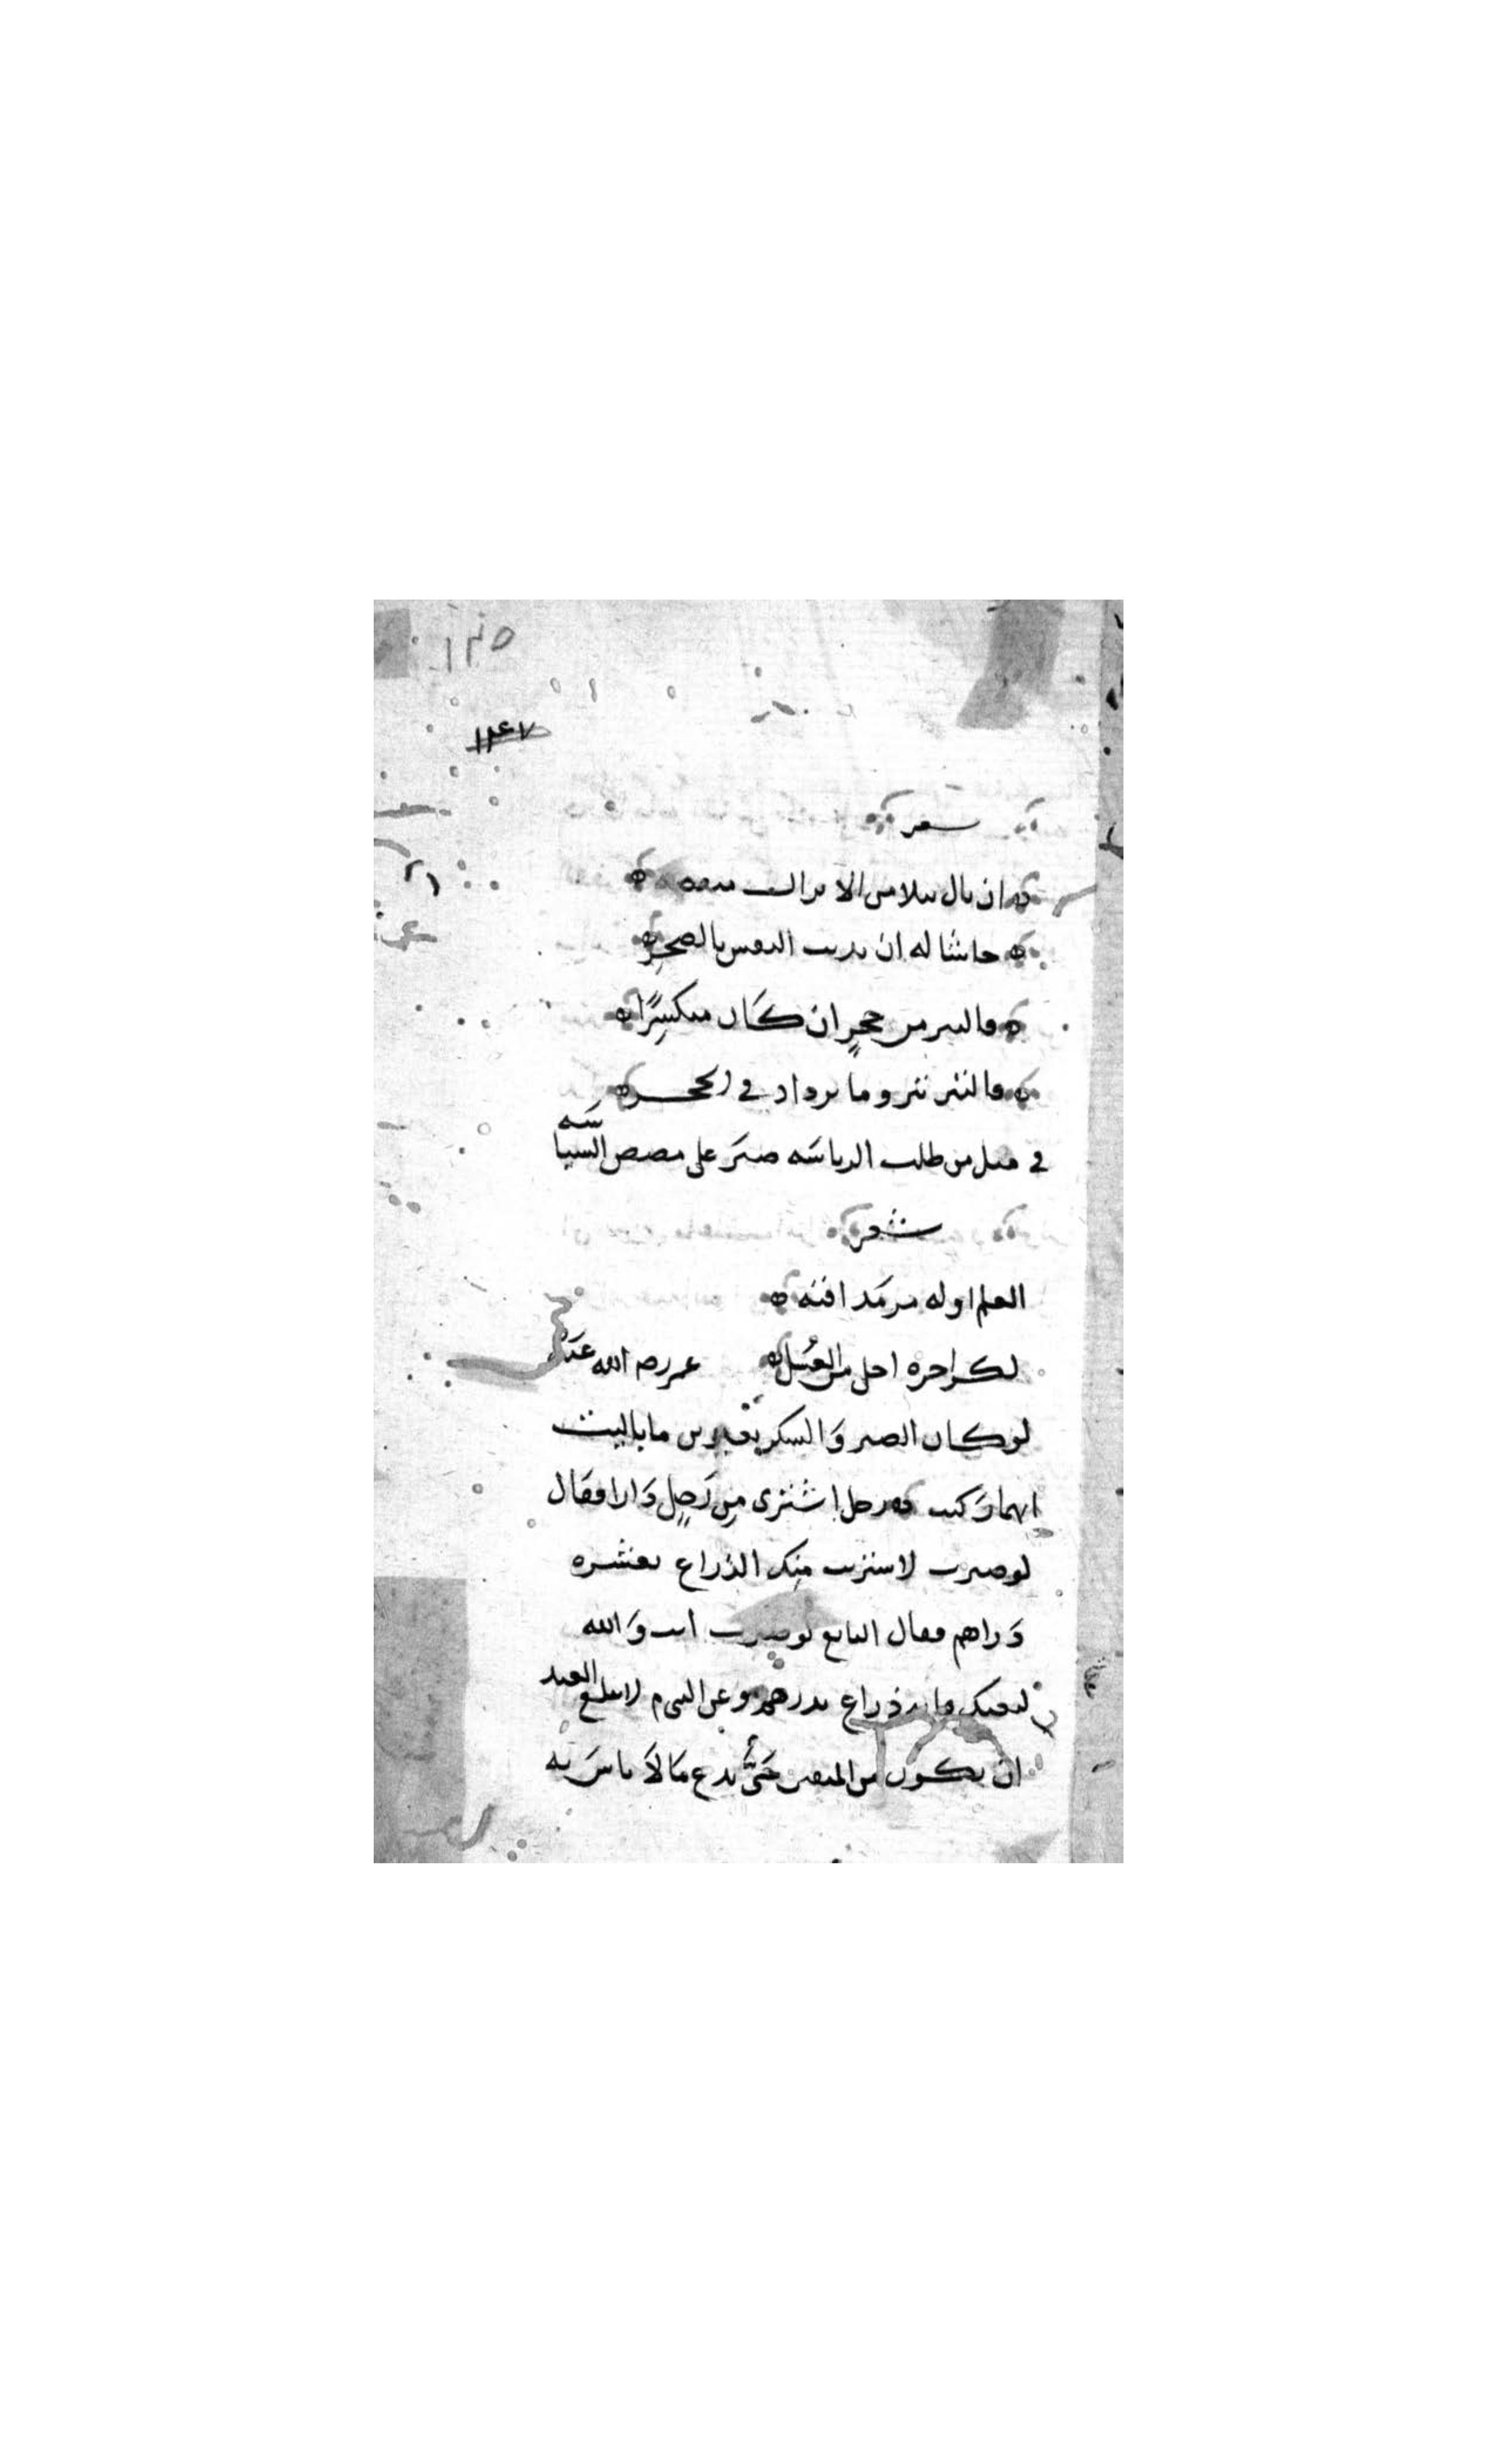 ١٣٥
١٢٤٧
شعر
ان نال نبلا من الانذال منه
حاشا له ان يذيب النفس بالضجر
فالتبر من حجر ان كان منكسرًا
فالتبر تبر وما يزداد في الحجر
في قيل من طلب الرياسَه صبَر على مضض السياسَه
شعر
العلم اوله مر مَذاقته
لكن اخره احلى من العسل عمر رضي الله عنه
لو كان الصبر وَالشكر بعيرين ما باليت
ايهما رَكبت رجل اشترى مِن رَجلٍ دَارا فقال
لو صبرت لاشتريت مِنك الذراع بعشره
دَراهم فقال البايع لو صبرت انت وَالله
لبعتك ذراع بدرهم وعن النبي م لا يبلغ العبد
ان يكون من المتقين حَتّى يدع مَا لاَ باسَ به